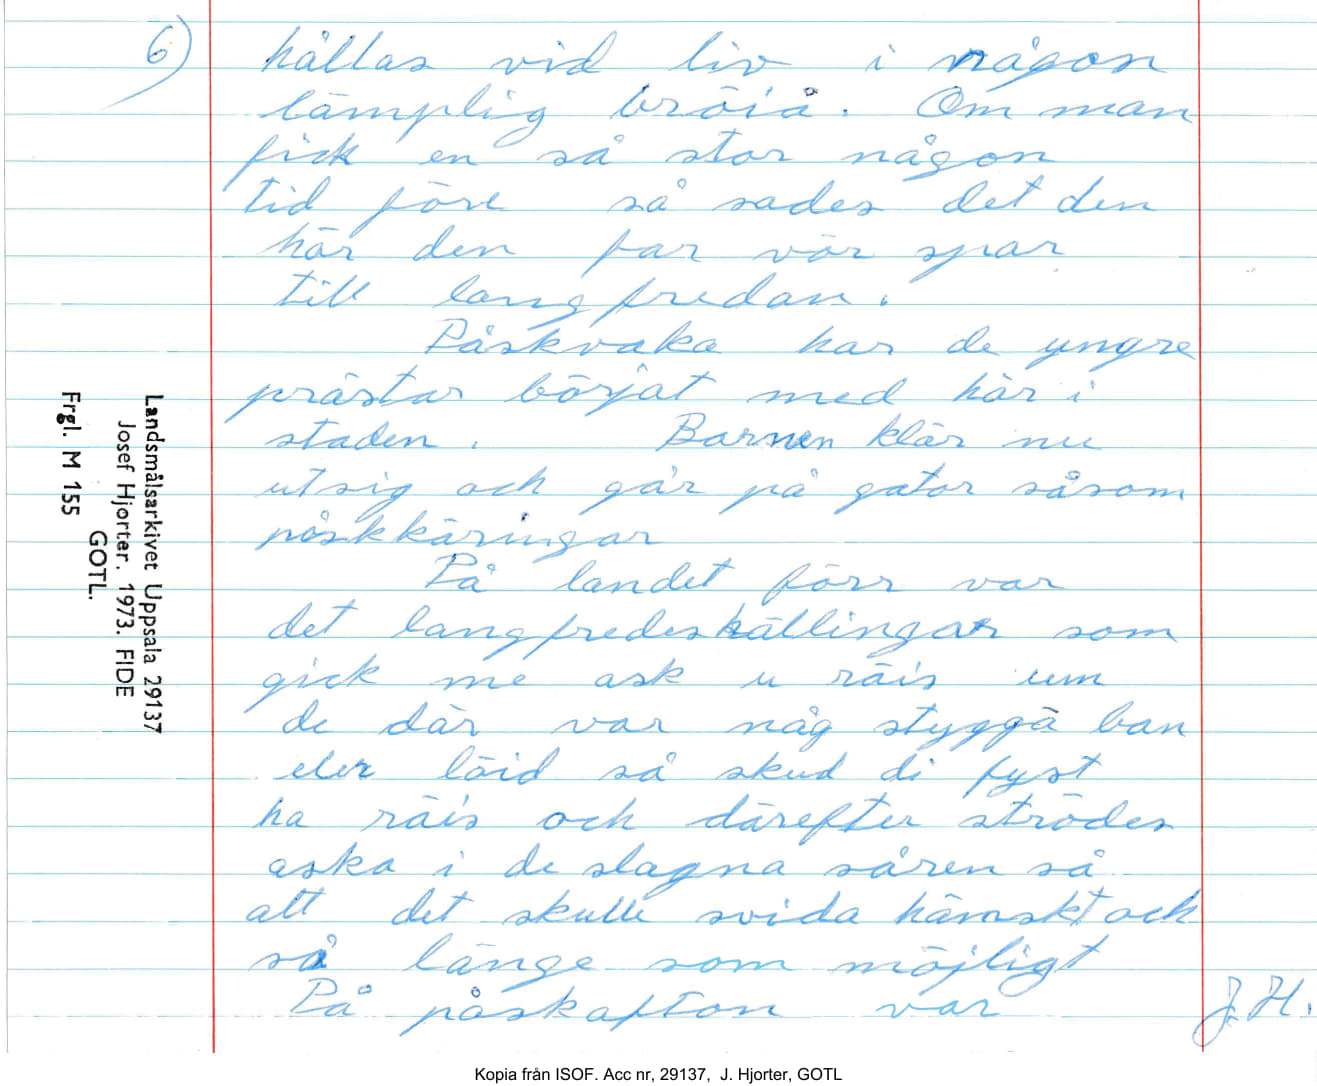 6)
hållas vid liv i någon
lämplig bröiå. Om man
fick en så stor någon
tid före så sades det den
här den far vör spar
till langfredan.
Påskvaka har de yngre
prästar börjat med här i
staden. Barnen klär nu
utsig och går på gator såsom
påskkäringar
På landet förr var
det langfredeskällingar som
gick me ask u räis um
de där var någ styggä ban
eler löid så skud di fyst
ha räis och därefter ströders
aska i de slagna såren så
att det skulle svida hämskt och
så länge som möjligt
På påskafton var
J.H.
Landsmålsarkivet Uppsala 29137
Josef Hjorter. 1973. FIDE
GOTL.
Frgl. M 155
Kopia från ISOF. Acc nr, 29137, J. Hjorter, GOTL